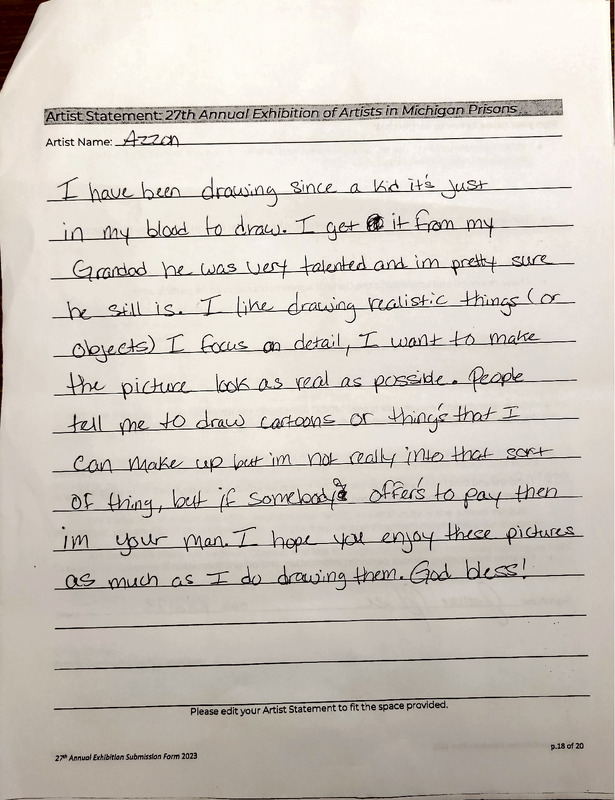 Artist Statement: 27th Annual Exhibition of Artists in Michigan Prisons
Artist Name: Azzon
I have been drawing since a kid it's just
in my blood to draw. I get it from my
Grandad he was very talented and im pretty sure
he still is. I like drawing realistic things (or
objects) I focus on detail, I want to make
the picture look as real as possible. People
tell me to draw cartoons or thing's that I
can make up but im not really into that sort
of thing, but if somebody offer's to pay then
im your man. I hope you enjoy these pictures
as much as I do drawing them. God bless!
Please edit your Artist Statement to fit the space provided.
27th Annual Exhibition Submission Form 2023
p.18 of 20